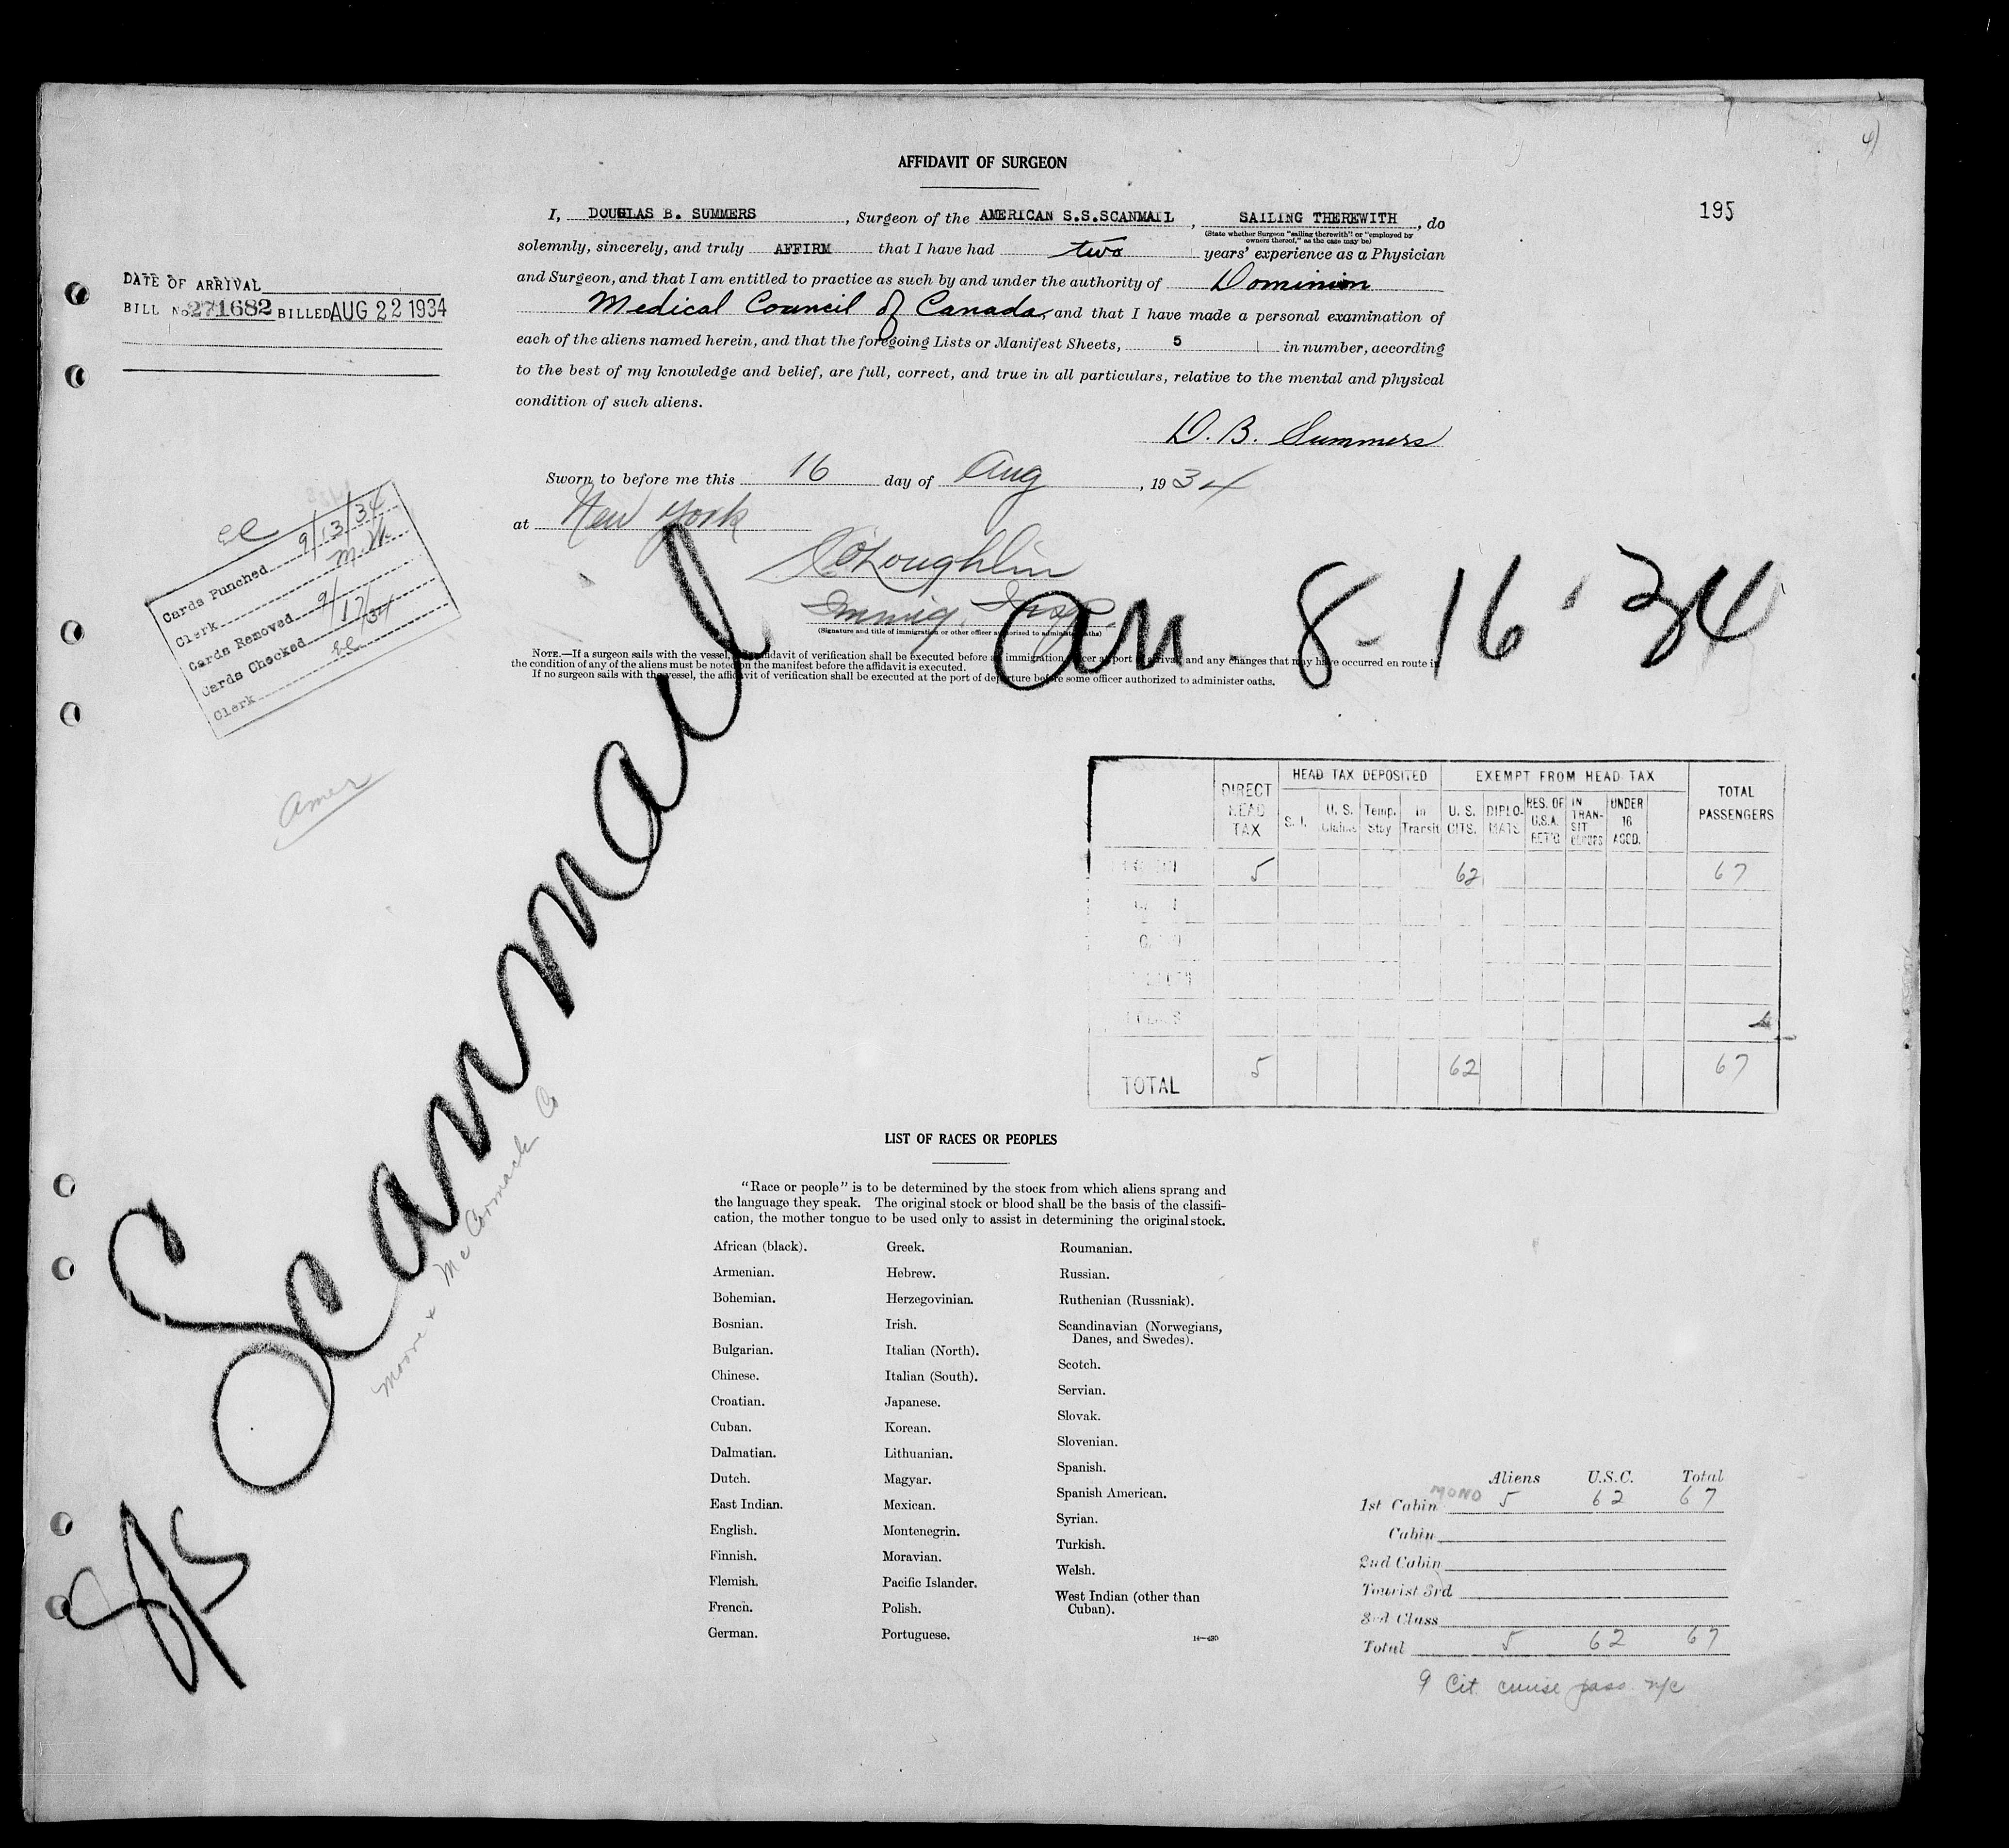 4)
AFFIDAVIT OF SURGEON
195
I, DOUGLAS B. SUMMERS, Surgeon of the AMERICAN S.S.SCANMAIL, SAILING THEREWITH, do
(State whether Surgeon "sailing therewith" or "employed by owners thereof," as the case may be)
solemnly, sincerely, and truly AFFIRM that I have had two years' experience as a Physician
and Surgeon, and that I am entitled to practice as such by and under the authority of Dominion
Medical Council of Canada, and that I have made a personal examination of
each of the aliens named herein, and that the foregoing Lists or Manifest Sheets, 5 in number, according
to the best of my knowledge and belief, are full, correct, and true in all particulars, relative to the mental and physical
condition of such aliens.
D. B. Summers
Sworn to before me this 16 day of Aug, 1934
at New York
O'Loughlin
Immig. Insp.
(Signature and title of immigration or other officer authorized to administer oaths)
NOTE.—If a surgeon sails with the vessel, affidavit of verification shall be executed before immigration officer at port of arrival and any changes that may have occurred en route in
the condition of any of the aliens must be noted on the manifest before the affidavit is executed.
If no surgeon sails with the vessel, the affidavit of verification shall be executed at the port of departure before some officer authorized to administer oaths.
DATE OF ARRIVAL
BILL No. 271682 BILLED AUG 22 1934
ee
Cards Punched 9/13/34
Clerk M.W.
Cards Removed 9/17/34
Cards Checked ee
Clerk
Amer
S/S Scanmail
arr. 8-16-34
Moore & McCormack Co
DIRECT HEAD TAX
HEAD TAX DEPOSITED
EXEMPT FROM HEAD TAX
TOTAL PASSENGERS
S. I. U. S. Claims Temp. Stay In Transit U. S. CITS. DIPLO-MATS RES. OF U.S.A. RET'G IN TRAN-SIT UNDER 16 ACCD.
5 62 67
TOTAL 5 62 67
LIST OF RACES OR PEOPLES
"Race or people" is to be determined by the stock from which aliens sprang and
the language they speak. The original stock or blood shall be the basis of the classifi-
cation, the mother tongue to be used only to assist in determining the original stock.
African (black).
Armenian.
Bohemian.
Bosnian.
Bulgarian.
Chinese.
Croatian.
Cuban.
Dalmatian.
Dutch.
East Indian.
English.
Finnish.
Flemish.
French.
German.
Greek.
Hebrew.
Herzegovinian.
Irish.
Italian (North).
Italian (South).
Japanese.
Korean.
Lithuanian.
Magyar.
Mexican.
Montenegrin.
Moravian.
Pacific Islander.
Polish.
Portuguese.
Roumanian.
Russian.
Ruthenian (Russniak).
Scandinavian (Norwegians,
Danes, and Swedes).
Scotch.
Servian.
Slovak.
Slovenian.
Spanish.
Spanish American.
Syrian.
Turkish.
Welsh.
West Indian (other than
Cuban).
Aliens U.S.C. Total
1st Cabin MONO 5 62 67
Cabin
2nd Cabin
Tourist 3rd
3rd Class
Total 5 62 67
9 Cit. cruise pass. n/c